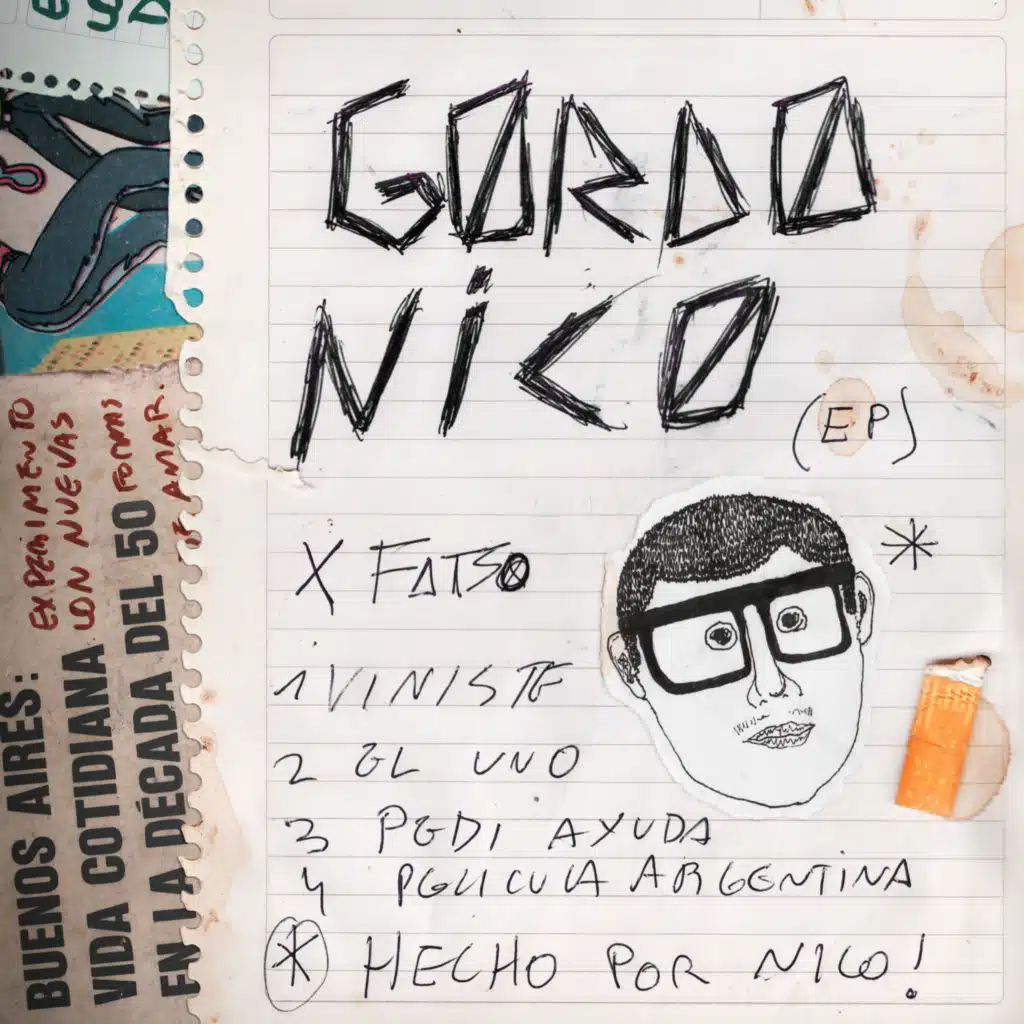 GORDO
NiCO
(EP)
X FATSO
1 VINISTE
2 EL UNO
3 PEDI AYUDA
4 PELICULA ARGENTINA
* HECHO POR NICO!
EXPERIMENTO
CON NUEVAS
FORMAS
DE AMAR.
BUENOS AIRES:
VIDA COTIDIANA
EN LA DÉCADA DEL 50